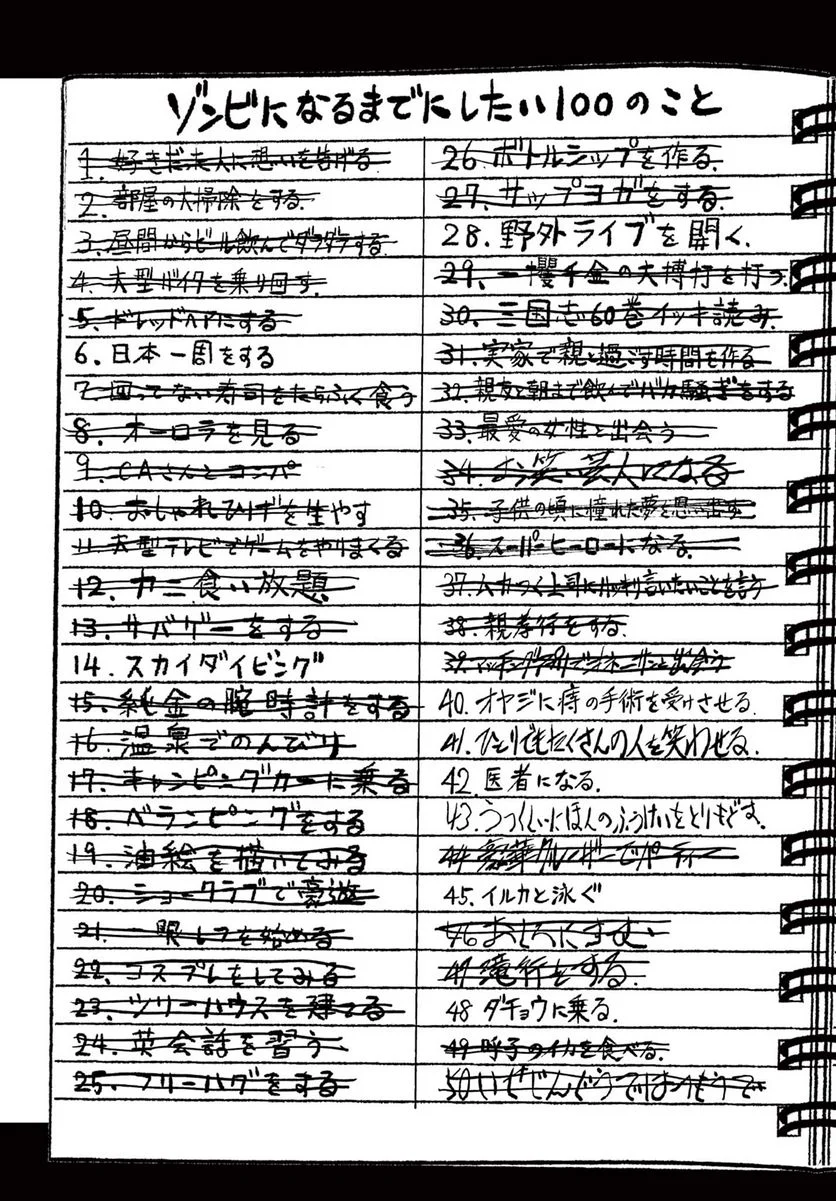 ゾンビになるまでにしたい100のこと
1. 好きだった人に想いを告げる
2. 部屋の大掃除をする.
3. 昼間からビール飲んでダラダラする
4. 大型バイクを乗り回す.
5. ドレッドヘアにする
6. 日本一周をする
7. 回ってない寿司をたらふく食う
8. オーロラを見る
9. CAさんとコンパ
10. おしゃれひげを生やす
11. 大型テレビでゲームをやりまくる
12. カニ食い放題
13. サバゲーをする
14. スカイダイビング
15. 純金の腕時計をする
16. 温泉でのんびり
17. キャンピングカーに乗る
18. ベランピングをする
19. 油絵を描いてみる
20. ショークラブで豪遊
21. 一眼レフを始める
22. コスプレをしてみる
23. ツリーハウスを建てる
24. 英会話を習う
25. フリーハグをする
26. ボトルシップを作る.
27. サップヨガをする.
28. 野外ライブを開く.
29. 一攫千金の大博打を打つ.
30. 三国志60巻イッキ読み.
31. 実家で親と過ごす時間を作る
32. 親友と朝まで飲んでバカ騒ぎをする
33. 最愛の女性と出会う
34. お笑い芸人になる
35. 子供の頃に憧れた夢を思い出す.
36. スーパーヒーローになる.
37. ムカつく上司にハッキリ言いたいことを言う
38. 親孝行をする.
39. マッチングアプリでオネーサンと出会う
40. オヤジに痔の手術を受けさせる.
41. ひとりでもたくさんの人を笑わせる.
42. 医者になる.
43. うつくしいにほんのふうけいをとりもどす.
44. 豪華クルーザーでパーティー
45. イルカと泳ぐ
46
47. 滝行をする.
48 ダチョウに乗る.
49. 呼子のイカを食べる.
50.